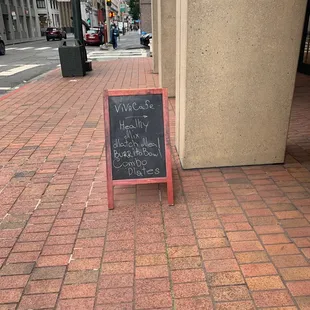 Viv's Cafe
Healthy
Mix
Match Meal
Burrito Bowl
Combo
Plates